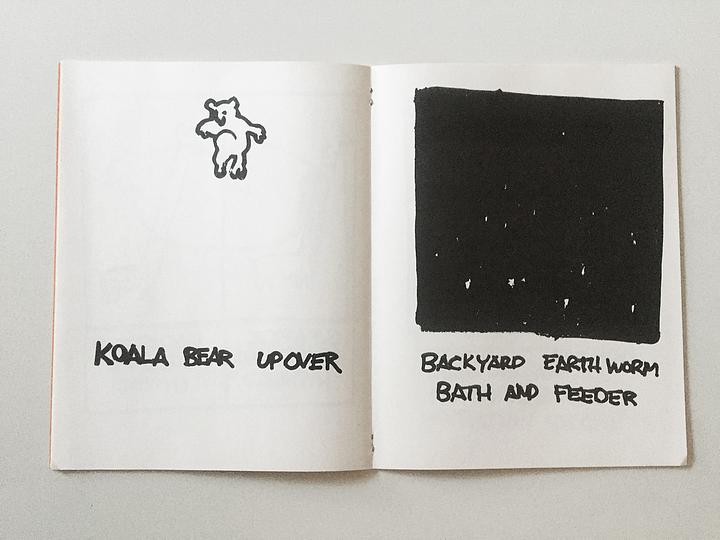 KOALA BEAR UPOVER
BACKYARD EARTHWORM
BATH AND FEEDER